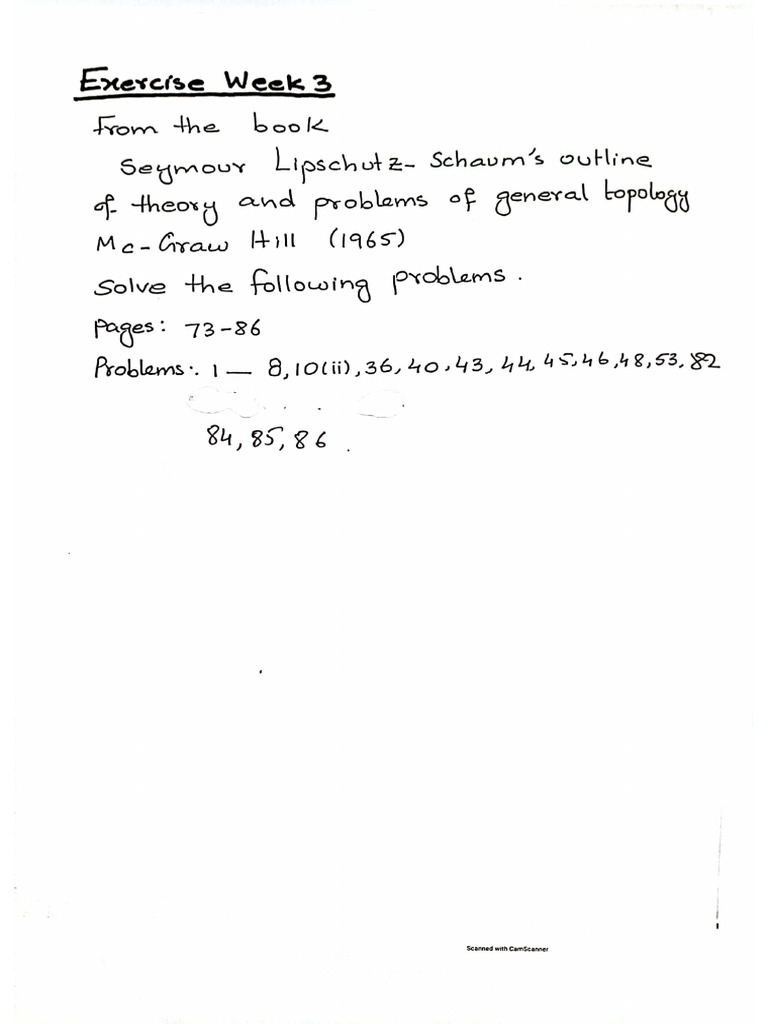 Exercise Week 3
From the book
Seymour Lipschutz- Schaum's outline
of theory and problems of general topology
Mc-Graw Hill (1965)
Solve the following problems.
Pages: 73-86
Problems: 1 — 8, 10(ii), 36, 40, 43, 44, 45, 46, 48, 53, 82
84, 85, 86.
Scanned with CamScanner